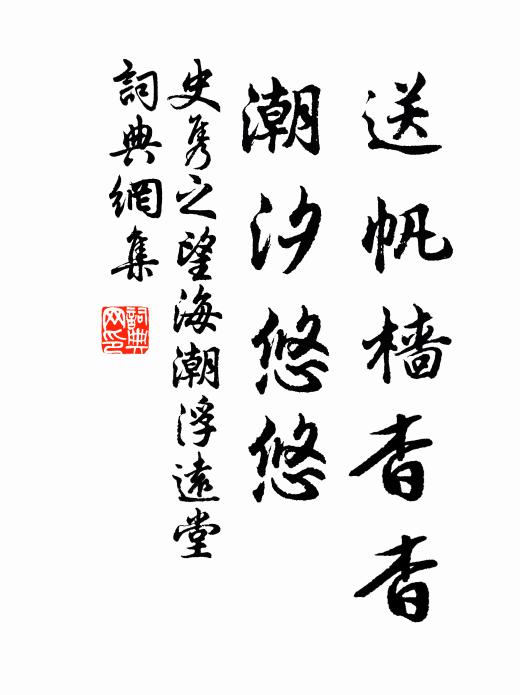 送帆檣杳杳
潮汐悠悠
史雋之望海潮浮遠堂
詞典網集
詞典網印